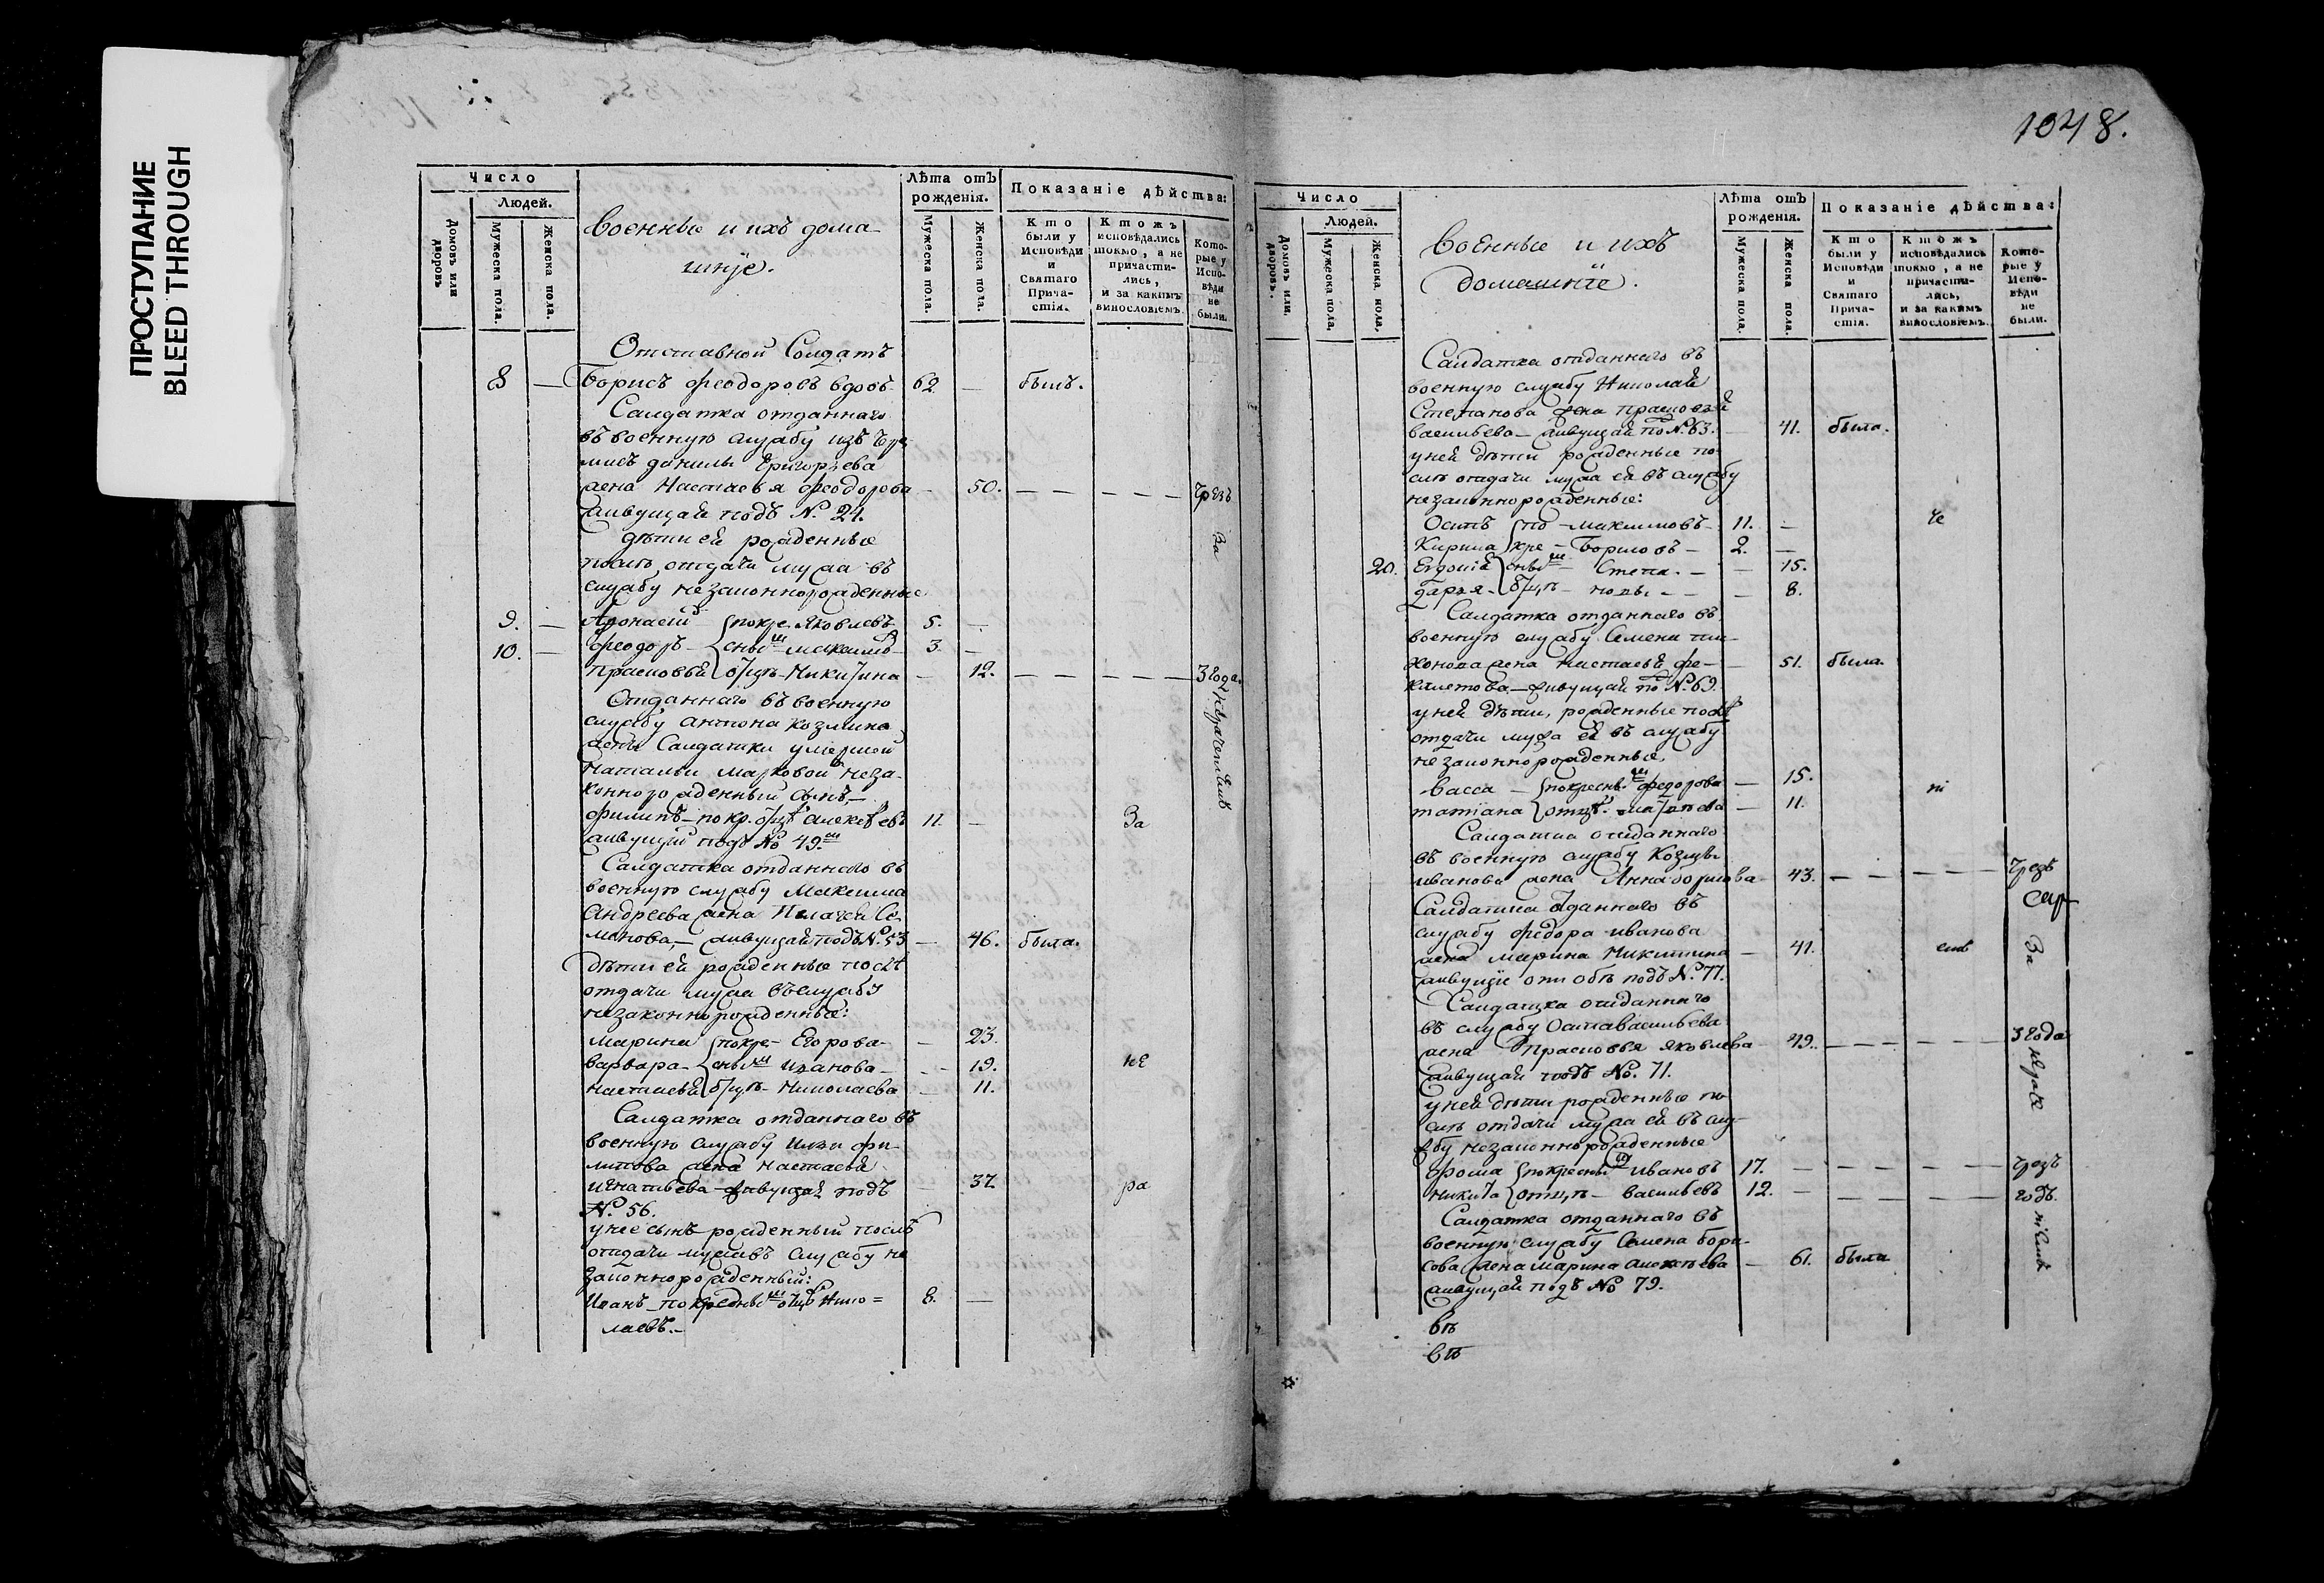 ПРОСТУПАНИЕ
BLEED THROUGH
1048.
Число
Людей.
Домовъ или дворовъ
Мужеска пола.
Женска пола.
Военные и ихъ дома-
шнје.
Лѣта отъ рожденія.
Мужеска пола.
Женска пола.
Показаніе дѣйства:
Кто были у Исповѣди и Святаго Прича-стія.
Ктожъ исповѣдались токмо, а не причасти-лись, и за какимъ винословіемъ.
Кото-рые у Испо-вѣди не были.
Отставной Солдатъ
8 — Борисъ Феодоровъ вдовъ 62 — былъ.
Салдатка отданнаго
въ военную службу изъ
данилы Григорьева
жена Настасья Феодорова — 50. — — — — — Чрезъ
живущая подъ №. 24.
дѣти ей рожденные За
послѣ отдачи мужа въ
службу незаконнорожденные
9. — Афонасій покре Яковлевъ 5. —
10. — Феодоръ — сны Максимо 3. —
Прасковья Никитина — 12. — — — — — 3 года.
Отданнаго въ военную
службу Антона Козмина
жены Салдатки умершей
Натальи Марковой неза-
коннорожденный сынъ —
Филипъ — по кр. Алексѣевъ 11. — За
живущій подъ № 49.
Салдатка отданнаго въ
военную службу Максима
Андреева жена Пелагея Се-
менова, — живущая подъ №. 53 — 46. была.
Дѣти ей рожденные послѣ
отдачи мужа въ службу
незаконнорожденные:
Марина покре — Егорова — — 23.
Варвара — сны Иванова — — 19. не
Настасья Николаева — 11.
Салдатка отданнаго въ
военную службу Ильи Фи-
липова жена Настасья
Игнатьева живущая подъ — 37. ра
№. 56.
у нее сынъ рожденный послѣ
отдачи мужа въ службу не
законнорожденный:
Иванъ — по Нико= 8. —
лаевъ. —
Число
Людей.
Домовъ или дворовъ.
Мужеска пола,
Женска пола,
Военные и ихъ
домашніе.
Лѣта отъ рожденія.
Мужеска пола.
Женска пола.
Показаніе дѣйства:
Кто были у Исповѣди и Святаго Прича-стія.
Ктожъ исповѣдались токмо, а не причасти-лись, и за какимъ винословіемъ.
Кото-рые у Испо-вѣди не были.
Салдатка отданнаго въ
военную службу Николая
Степанова жена Прасковья
Васильева — живущая по №. 63. — 41. была.
у ней дѣти рожденные по-
слѣ отдачи мужа ей въ службу
незаконнорожденные:
Осипъ по — Максимовъ — 11. — че
Кирила кре — Борисовъ — 2. —
20. Евдокія сны Степа. — — 15.
Дарья — — 8.
Салдатка отданнаго въ
военную службу Семена Ти-
хонова жена Настасья Фе- — 51. была.
живущая по №. 69.
у ней дѣти, рожденные послѣ
отдачи мужа ей въ службу
незаконнорожденные,
Васса — покресны Федорова — 15. ні
Татіана — 11.
Салдатка отданнаго
въ военную службу Козмы
Иванова жена Анна Борисова — 43. — — — — Чрезъ
Салдатка отданнаго въ
службу Федора Иванова За
жена Марина Никитина — 41. емъ
живущіе они обѣ подъ №. 77.
Салдатка отданнаго
въ службу Васильева
жена Прасковья Яковлева — 49. — — — — 3 года
живущая подъ №. 71.
у ней дѣти рожденные по-
слѣ отдачи мужа ей въ слу-
жбу незаконнорожденные
Фома покресны Ивановъ 17. — — — — — Чрезъ
Никита — Васильевъ 12. — — — — — годъ.
Салдатка отданнаго въ
военную службу Семена Бори-
сова жена Марина Алексѣева — 61. была
живущая подъ № 79.
вѣ
вѣ